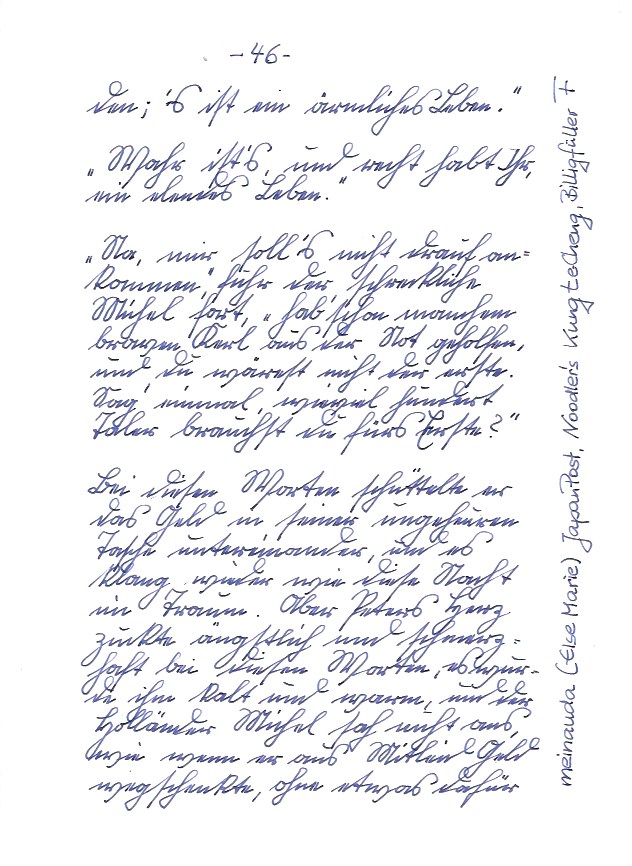 -46-
den; 's ist ein ärmliches Leben."
„Wahr ist's, und recht habt Ihr,
ein elendes Leben."
„Na, mir soll's nicht drauf an=
kommen," fuhr der schreckliche
Michel fort, „hab' schon manchem
braven Kerl aus der Not geholfen,
und du wärest nicht der erste.
Sag' einmal, wieviel hundert
Taler brauchst du fürs Erste?"
Bei diesen Worten schüttelte er
das Geld in seiner ungeheuren
Tasche untereinander, und es
klang wieder wie diese Nacht
im Traum. Aber Peters Herz
zuckte ängstlich und schmerz=
haft bei diesen Worten, es wur-
de ihm kalt und warm, und der
Holländer Michel sah nicht aus,
wie wenn er aus Mitleid Geld
wegschenkte, ohne etwas dafür
meinauda (Else Marie) JapanPost, Noodler's Kung te Cheng, Billigfüller